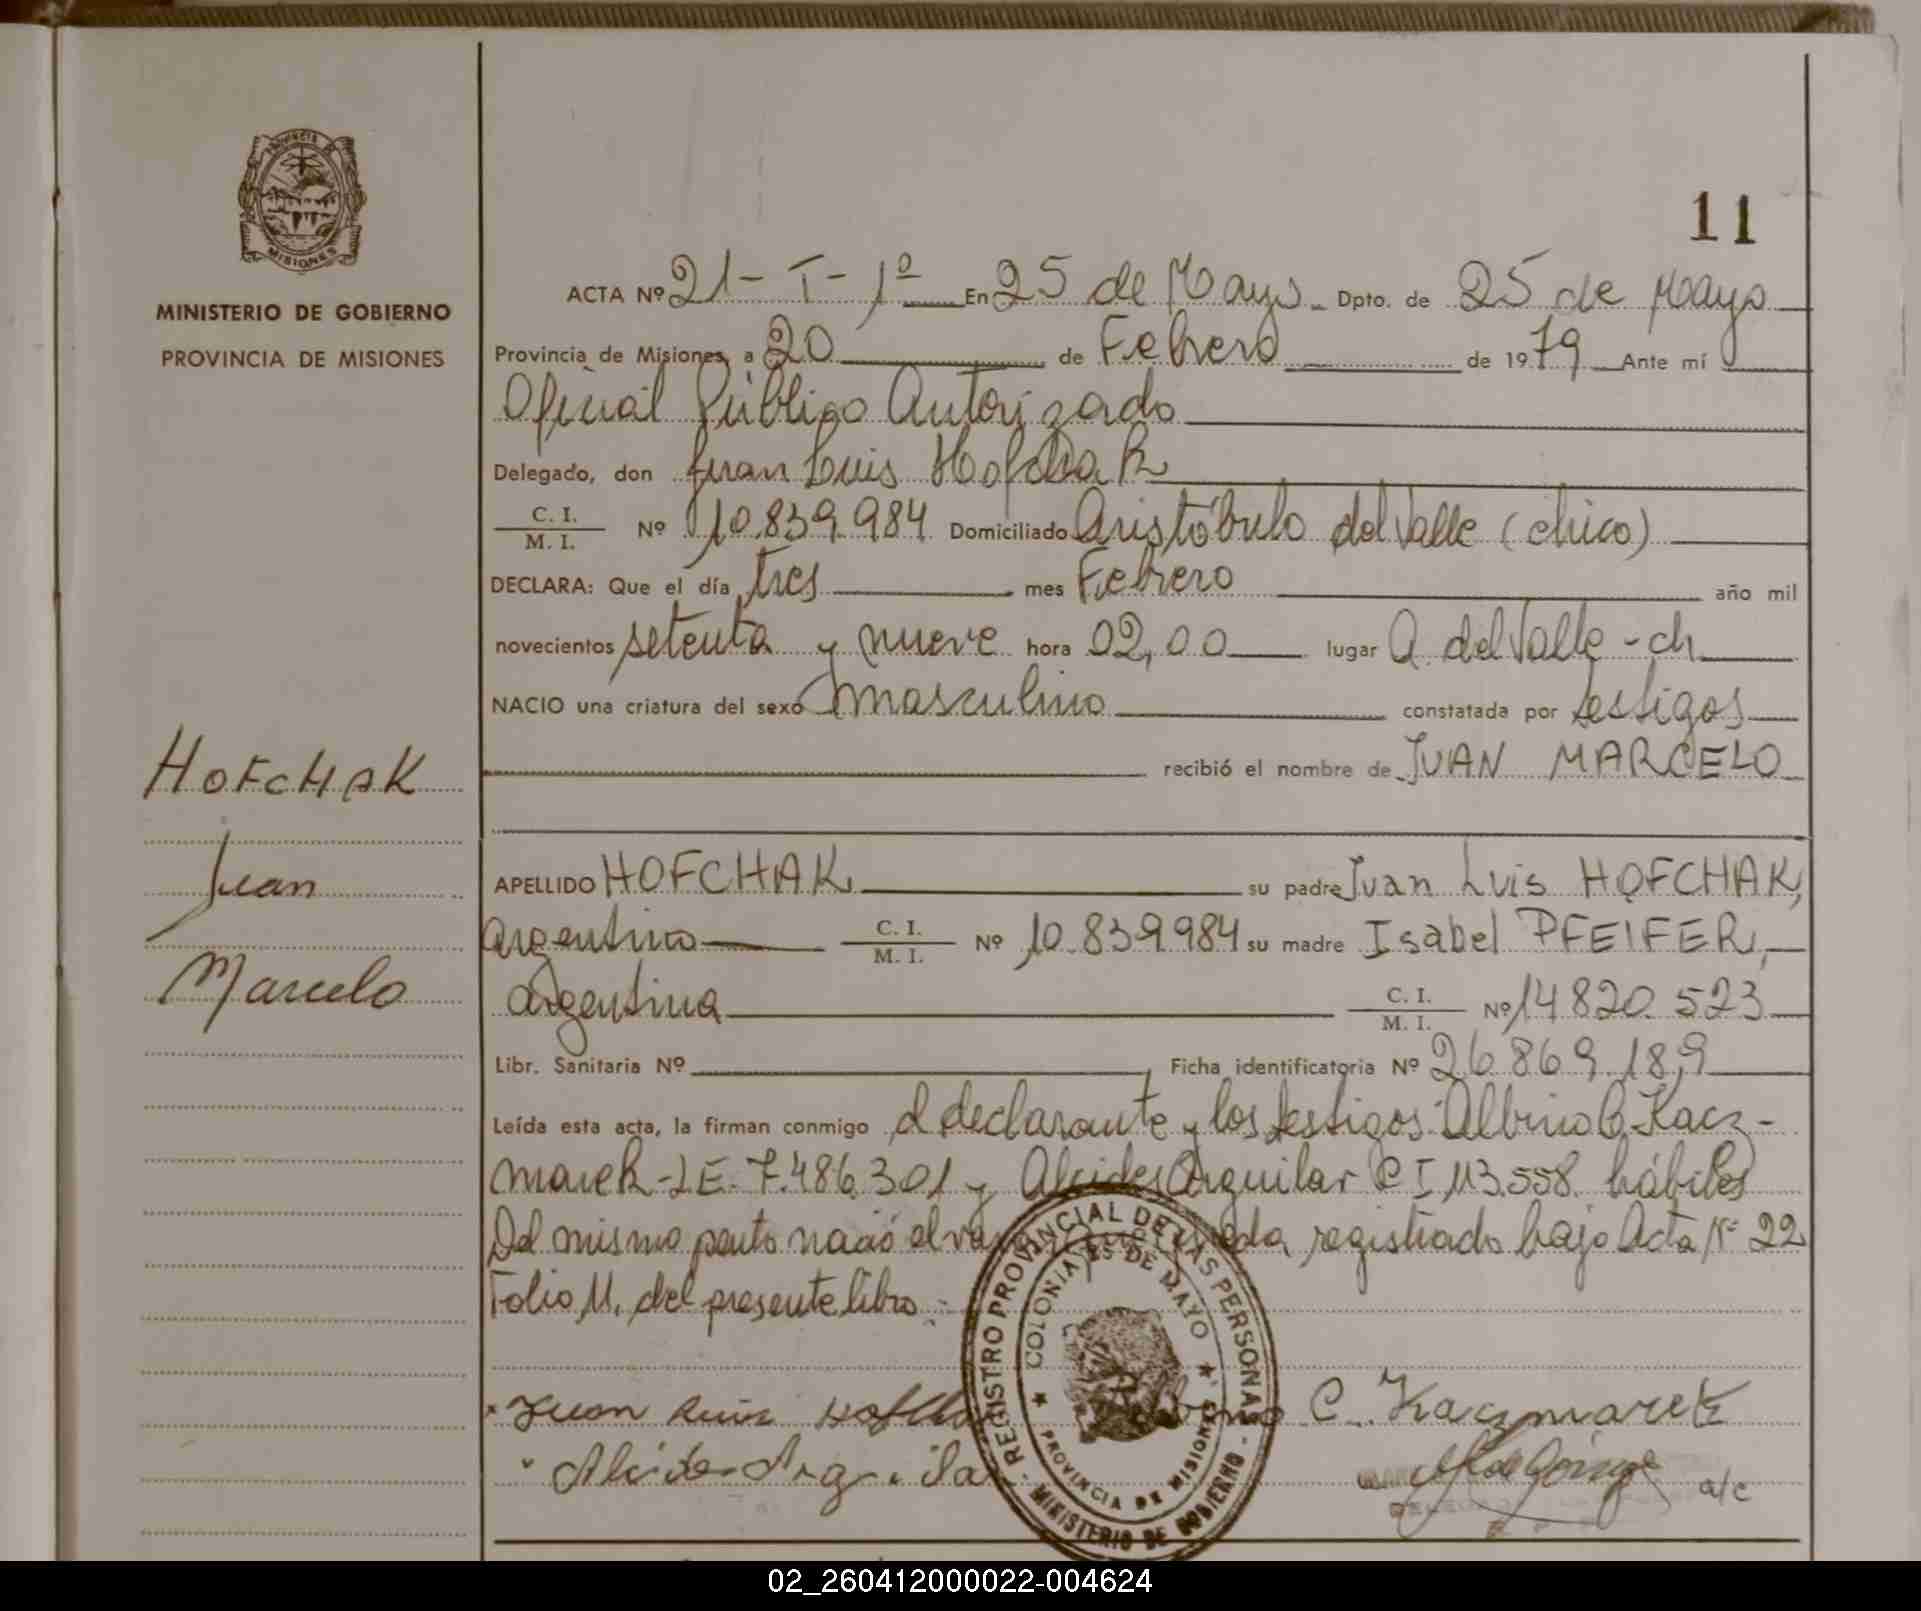 PROVINCIA DE
MISIONES
MINISTERIO DE GOBIERNO
PROVINCIA DE MISIONES
HOFCHAK
Juan
Marcelo
11
ACTA Nº 21- I- 1º En 25 de Mayo Dpto. de 25 de Mayo
Provincia de Misiones, a 20 de Febrero de 1979 Ante mí
Oficial Público Autorizado
Delegado, don Juan Luis Hofchak
C. I.
M. I. Nº 10.839.984 Domiciliado Aristóbulo del Valle (chico)
DECLARA: Que el día tres mes Febrero año mil
novecientos setenta y nueve hora 02,00 lugar A. del Valle - ch
NACIO una criatura del sexo masculino constatada por testigos
recibió el nombre de JUAN MARCELO
APELLIDO HOFCHAK su padre Juan Luis HOFCHAK,
argentino C. I. M. I. Nº 10.839984 su madre Isabel PFEIFER,
argentina C. I. M. I. Nº 14820.523
Libr. Sanitaria Nº Ficha identificatoria Nº 26.869.189
Leída esta acta, la firman conmigo el declarante y los testigos: Albino C. Kacz-
marek - LE. 7.486.301 y Alcides Arguilar C I 113.558. hábiles
Del mismo parto nació el registrado bajo Acta Nº 22
Folio 11. del presente libro.
REGISTRO PROVINCIAL DE LAS PERSONAS
COLONIA 25 DE MAYO
PROVINCIA DE MISIONES
MINISTERIO DE GOBIERNO
Juan Luis C. Kaczmarek
a/c
02_260412000022-004624